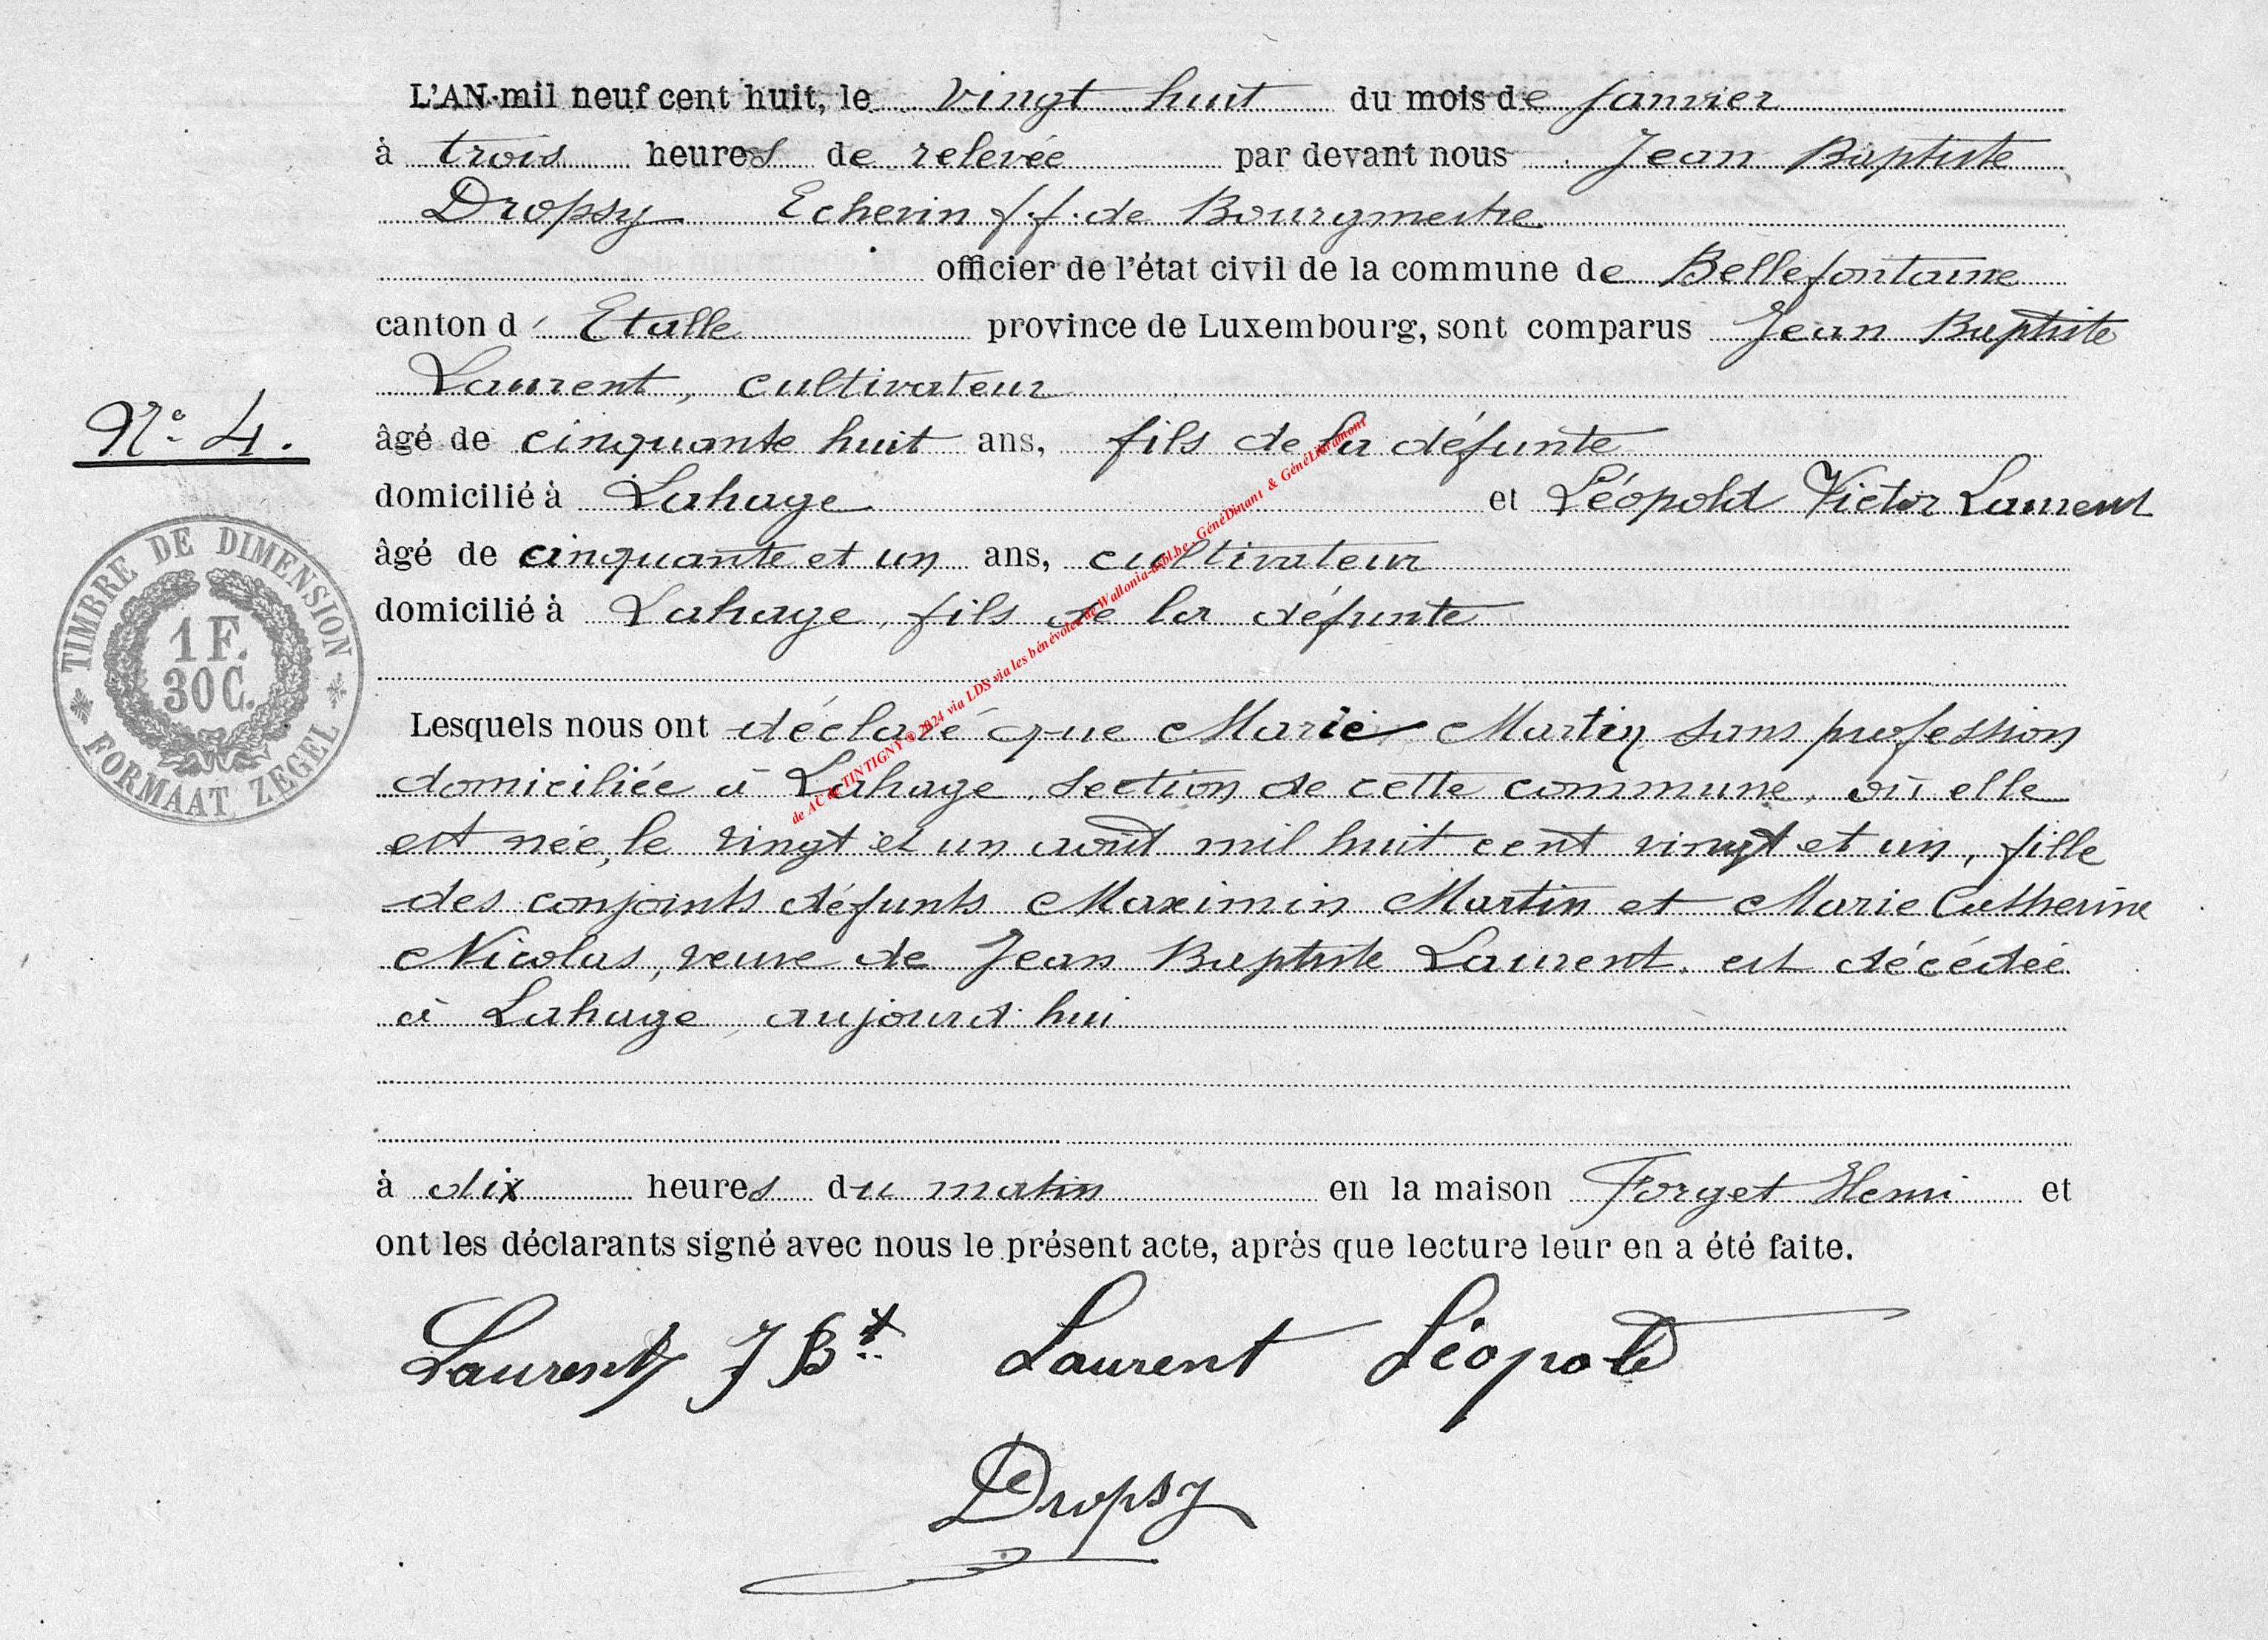 L'AN mil neuf cent huit, le vingt huit du mois de Janvier
à trois heures de relevée par devant nous Jean Baptiste
Dropsy Echevin f.f. de Bourgmestre
officier de l'état civil de la commune de Bellefontaine
canton d' Etalle province de Luxembourg, sont comparus Jean Baptiste
Laurent, cultivateur
N° 4.
âgé de cinquante huit ans, fils de la défunte
domicilié à Lahage et Léopold Victor Laurent
âgé de cinquante et un ans, cultivateur
domicilié à Lahage, fils de la défunte
TIMBRE DE DIMENSION
1 F.
30 C.
FORMAAT ZEGEL
Lesquels nous ont déclaré que Marie Martin sans profession
domiciliée à Lahage, section de cette commune, où elle
est née, le vingt et un août mil huit cent vingt et un, fille
des conjoints défunts Maximin Martin et Marie Catherine
Nicolas, veuve de Jean Baptiste Laurent, est décédée
à Lahage, aujourd'hui
à dix heures du matin en la maison Forget Henri et
ont les déclarants signé avec nous le présent acte, après que lecture leur en a été faite.
Laurent J Bt Laurent Léopold
Dropsy
de AC de TINTIGNY © 2024 via LDS via les bénévoles de Wallonia-asbl.be - GénéDinant & GénéLibramont